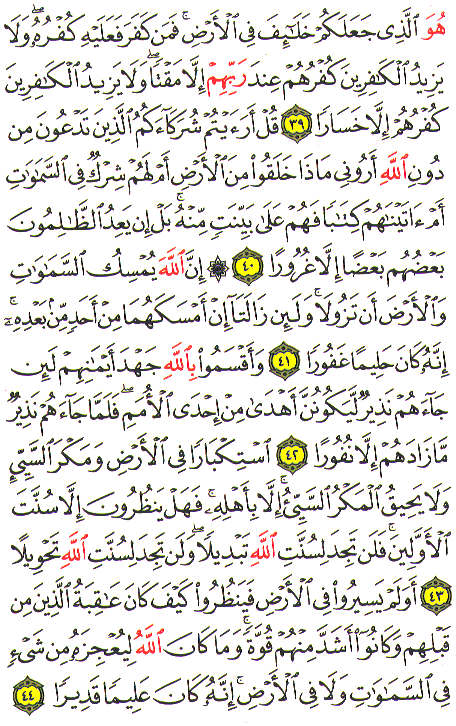 هُوَ ٱلَّذِى جَعَلَكُمْ خَلَٰٓئِفَ فِى ٱلْأَرْضِ ۚ فَمَن كَفَرَ فَعَلَيْهِ كُفْرُهُۥ ۖ وَلَا
يَزِيدُ ٱلْكَٰفِرِينَ كُفْرُهُمْ عِندَ رَبِّهِمْ إِلَّا مَقْتًا ۖ وَلَا يَزِيدُ ٱلْكَٰفِرِينَ
كُفْرُهُمْ إِلَّا خَسَارًا ٣٩ قُلْ أَرَءَيْتُمْ شُرَكَآءَكُمُ ٱلَّذِينَ تَدْعُونَ مِن
دُونِ ٱللَّهِ أَرُونِى مَاذَا خَلَقُوا۟ مِنَ ٱلْأَرْضِ أَمْ لَهُمْ شِرْكٌ فِى ٱلسَّمَٰوَٰتِ
أَمْ ءَاتَيْنَٰهُمْ كِتَٰبًا فَهُمْ عَلَىٰ بَيِّنَتٍ مِّنْهُ ۚ بَلْ إِن يَعِدُ ٱلظَّٰلِمُونَ
بَعْضُهُم بَعْضًا إِلَّا غُرُورًا ٤٠ ۞ إِنَّ ٱللَّهَ يُمْسِكُ ٱلسَّمَٰوَٰتِ
وَٱلْأَرْضَ أَن تَزُولَا ۚ وَلَئِن زَالَتَآ إِنْ أَمْسَكَهُمَا مِنْ أَحَدٍ مِّنۢ بَعْدِهِۦٓ ۚ
إِنَّهُۥ كَانَ حَلِيمًا غَفُورًا ٤١ وَأَقْسَمُوا۟ بِٱللَّهِ جَهْدَ أَيْمَٰنِهِمْ لَئِن
جَآءَهُمْ نَذِيرٌ لَّيَكُونُنَّ أَهْدَىٰ مِنْ إِحْدَى ٱلْأُمَمِ ۖ فَلَمَّا جَآءَهُمْ نَذِيرٌ
مَّا زَادَهُمْ إِلَّا نُفُورًا ٤٢ ٱسْتِكْبَارًا فِى ٱلْأَرْضِ وَمَكْرَ ٱلسَّيِّئِ ۚ
وَلَا يَحِيقُ ٱلْمَكْرُ ٱلسَّيِّئُ إِلَّا بِأَهْلِهِۦ ۚ فَهَلْ يَنظُرُونَ إِلَّا سُنَّتَ
ٱلْأَوَّلِينَ ۚ فَلَن تَجِدَ لِسُنَّتِ ٱللَّهِ تَبْدِيلًا ۖ وَلَن تَجِدَ لِسُنَّتِ ٱللَّهِ تَحْوِيلًا
٤٣ أَوَلَمْ يَسِيرُوا۟ فِى ٱلْأَرْضِ فَيَنظُرُوا۟ كَيْفَ كَانَ عَٰقِبَةُ ٱلَّذِينَ مِن
قَبْلِهِمْ وَكَانُوٓا۟ أَشَدَّ مِنْهُمْ قُوَّةً ۚ وَمَا كَانَ ٱللَّهُ لِيُعْجِزَهُۥ مِن شَىْءٍ
فِى ٱلسَّمَٰوَٰتِ وَلَا فِى ٱلْأَرْضِ ۚ إِنَّهُۥ كَانَ عَلِيمًا قَدِيرًا ٤٤